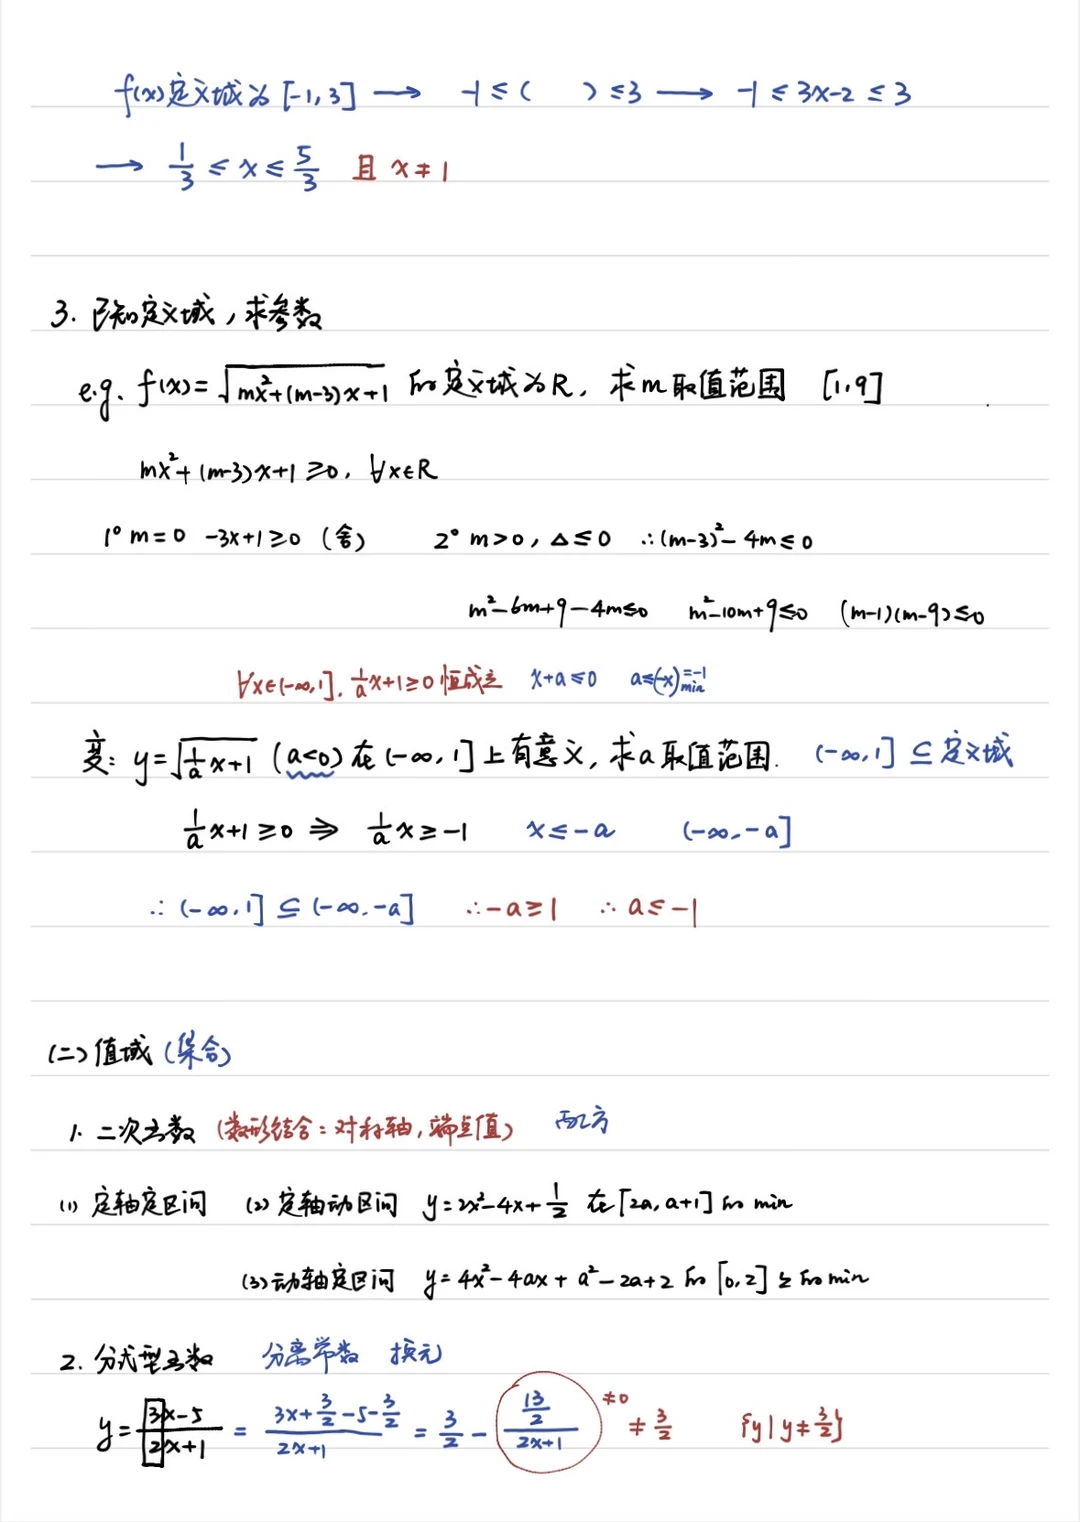 f(x)定义域为[-1,3] → -1≤( )≤3 → -1≤3x-2≤3
→ 1/3≤x≤5/3 且 x≠1
3. 已知定义域,求参数
e.g. f(x)=√(mx²+(m-3)x+1) 的定义域为R, 求m取值范围 [1,9]
mx²+(m-3)x+1≥0, ∀x∈R
1° m=0 -3x+1≥0 (舍) 2° m>0, Δ≤0 ∴(m-3)²-4m≤0
m²-6m+9-4m≤0 m²-10m+9≤0 (m-1)(m-9)≤0
∀x∈(-∞,1], 1/a x+1≥0恒成立 x+a≤0 a≤(-x)min=-1
变: y=√(1/a x+1) (a<0)在(-∞,1]上有意义, 求a取值范围. (-∞,1]⊆定义域
1/a x+1≥0 ⇒ 1/a x≥-1 x≤-a (-∞,-a]
∴(-∞,1]⊆(-∞,-a] ∴-a≥1 ∴a≤-1
(二)值域(集合)
1. 二次函数(数形结合:对称轴,端点值) 配方
(1) 定轴定区间 (2) 定轴动区间 y=2x²-4x+1/2 在[2a,a+1]的min
(3)动轴定区间 y=4x²-4ax+a²-2a+2 的[0,2]上的min
2. 分式型函数 分离常数 换元
y=(3x-5)/(2x+1) = (3x+3/2-5-3/2)/(2x+1) = 3/2 - (13/2)/(2x+1) ≠0 ≠3/2 {y|y≠3/2}